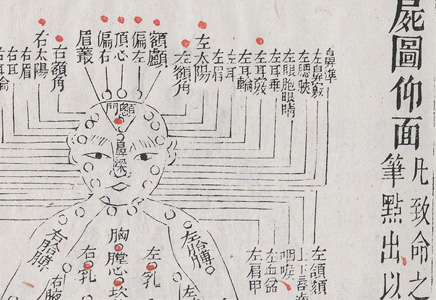 屍圖仰面
凡致命之
筆點出以
鼻準
左鼻竅
左眼胞眼睛
左耳垂
左耳竅
左耳輪
左耳
左眉
左太陽
左額角
額顱
偏左
頂心
偏右
眉叢
右額角
右太陽
右眉
右耳
右耳輪
顖門
鼻梁
左頷頦
咽喉
左血盆
左肩甲
左胳膊
左乳
胸膛心坎
右乳
右胳膊